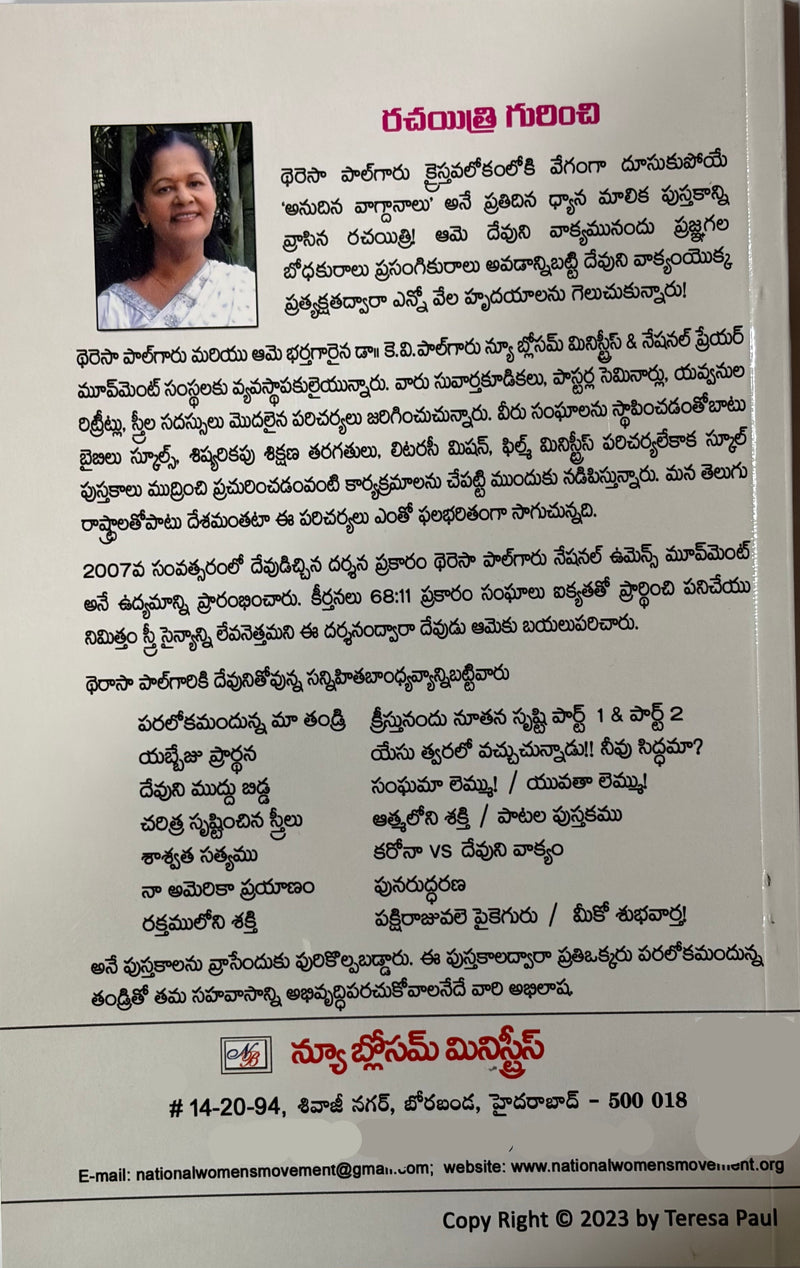 రచయిత్రి గురించి
థెరెసా పాల్‌గారు క్రైస్తవలోకంలోకి వేగంగా దూసుకుపోయే
'అనుదిన వాగ్దానాలు' అనే ప్రతిదిన ధ్యాన మాలిక పుస్తకాన్ని
వ్రాసిన రచయిత్రి! ఆమె దేవుని వాక్యమునందు ప్రజ్ఞగల
బోధకురాలు ప్రసంగికురాలు అవడాన్నిబట్టి దేవుని వాక్యంయొక్క
ప్రత్యక్షతద్వారా ఎన్నో వేల హృదయాలను గెలుచుకున్నారు!
థెరెసా పాల్‌గారు మరియు ఆమె భర్తగారైన డా॥ కె.వి.పాల్‌గారు న్యూ బ్లోసమ్ మినిస్ట్రీస్ & నేషనల్ ప్రేయర్
మూవ్‌మెంట్ సంస్థలకు వ్యవస్థాపకులైయున్నారు. వారు సువార్తకూడికలు, పాస్టర్ల సెమినార్లు, యవ్వనుల
రిట్రీట్లు, స్త్రీల సదస్సులు మొదలైన పరిచర్యలు జరిగించుచున్నారు. వీరు సంఘాలను స్థాపించడంతోబాటు
బైబిలు స్కూల్స్, శిష్యరికపు శిక్షణ తరగతులు, లిటరసీ మిషన్, ఫిల్మ్ మినిస్ట్రీస్ పరిచర్యలేకాక స్కూల్
పుస్తకాలు ముద్రించి ప్రచురించడంవంటి కార్యక్రమాలను చేపట్టి ముందుకు నడిపిస్తున్నారు. మన తెలుగు
రాష్ట్రాలతోపాటు దేశమంతటా ఈ పరిచర్యలు ఎంతో ఫలభరితంగా సాగుచున్నది.
2007వ సంవత్సరంలో దేవుడిచ్చిన దర్శన ప్రకారం థెరెసా పాల్‌గారు నేషనల్ ఉమెన్స్ మూవ్‌మెంట్
అనే ఉద్యమాన్ని ప్రారంభించారు. కీర్తనలు 68:11 ప్రకారం సంఘాలు ఐక్యతతో ప్రార్థించి పనిచేయు
నిమిత్తం స్త్రీ సైన్యాన్ని లేవనెత్తమని ఈ దర్శనంద్వారా దేవుడు ఆమెకు బయలుపరిచారు.
థెరాసా పాల్‌గారికి దేవునితోవున్న సన్నిహితబాంధ్యవ్యాన్నిబట్టివారు
పరలోకమందున్న మా తండ్రి క్రీస్తునందు నూతన సృష్టి పార్ట్ 1 & పార్ట్ 2
యబ్బేజు ప్రార్థన యేసు త్వరలో వచ్చుచున్నాడు!! నీవు సిద్ధమా?
దేవుని ముద్దు బిడ్డ సంఘమా లెమ్ము! / యువతా లెమ్ము!
చరిత్ర సృష్టించిన స్త్రీలు ఆత్మలోని శక్తి / పాటల పుస్తకము
శాశ్వత సత్యము కరోనా VS దేవుని వాక్యం
నా అమెరికా ప్రయాణం పునరుద్ధరణ
రక్తములోని శక్తి పక్షిరాజువలె పైకెగురు / మీకో శుభవార్త!
అనే పుస్తకాలను వ్రాసేందుకు పురికొల్పబడ్డారు. ఈ పుస్తకాలద్వారా ప్రతిఒక్కరు పరలోకమందున్న
తండ్రితో తమ సహవాసాన్ని అభివృద్ధిపరచుకోవాలనేదే వారి అభిలాష.
NB న్యూ బ్లోసమ్ మినిస్ట్రీస్
# 14-20-94, శివాజీ నగర్, బోరబండ, హైదరాబాద్ - 500 018
E-mail: nationalwomensmovement@gmail.com; website: www.nationalwomensmovement.org
Copy Right © 2023 by Teresa Paul